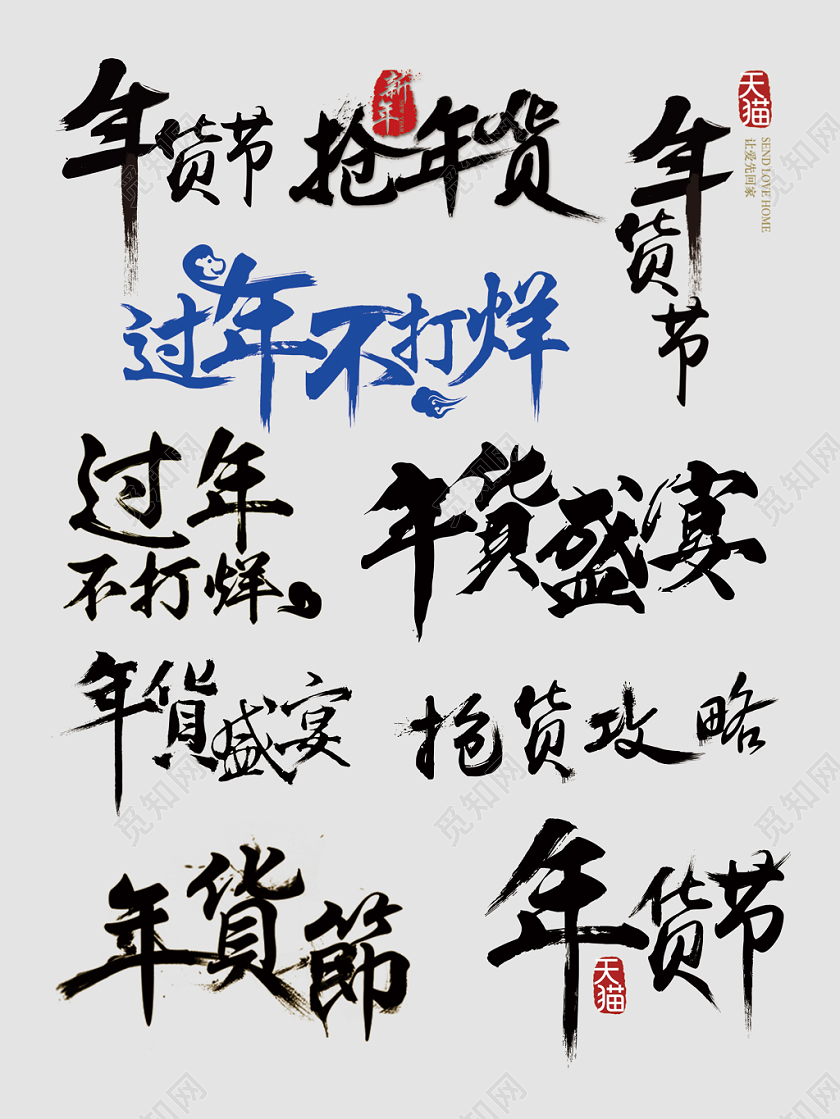 年货节
新年
抢年货
年货节
天猫
SEND LOVE HOME
让爱先回家
过年不打烊
过年
不打烊
年貨盛宴
年貨盛宴
抢货攻略
年貨節
年货节
天猫
觅知网